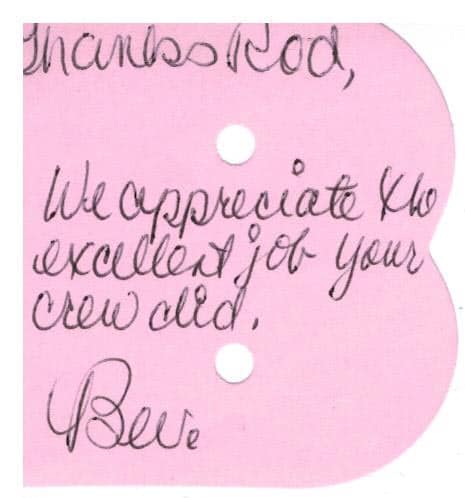 Thanks Rod,
We appreciate the
excellent job your
crew did.
Bev.